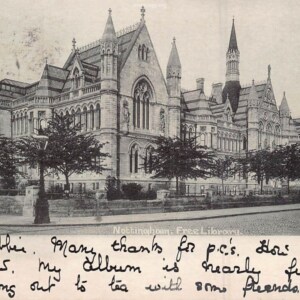 Nottingham. Free Library.
Many thanks for p.c's.
My album is nearly
out to tea with some friends